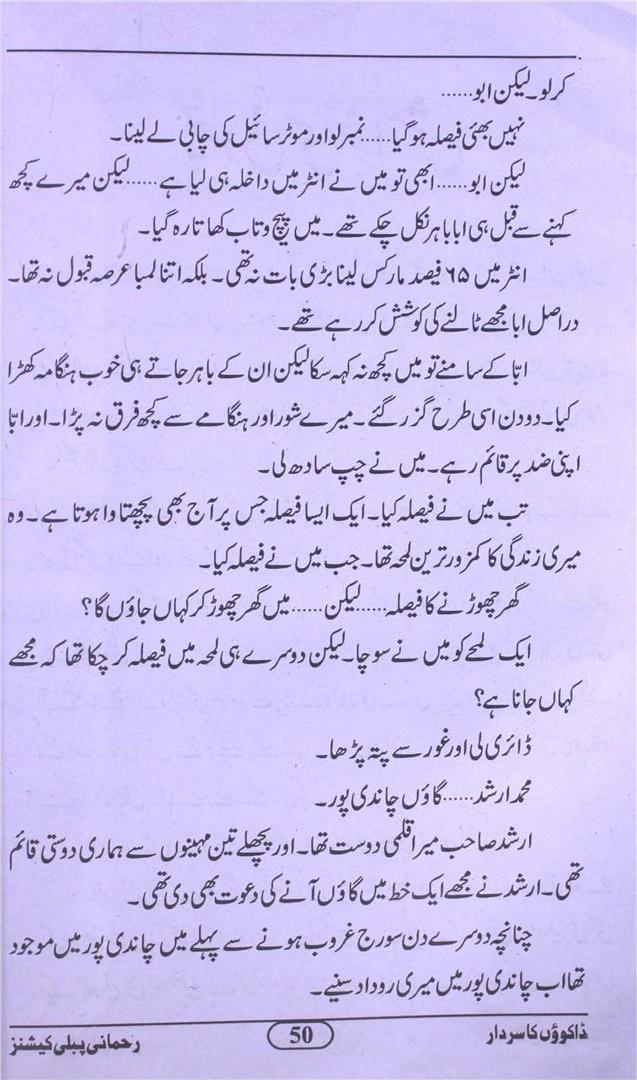 کرلو۔ لیکن ابو......
نہیں بھئی فیصلہ ہو گیا......نمبر لو اور موٹر سائیل کی چابی لے لینا۔
لیکن ابو......ابھی تو میں نے انٹر میں داخلہ ہی لیا ہے......لیکن میرے کچھ
کہنے سے قبل ہی ابا باہر نکل چکے تھے۔ میں پیچ و تاب کھاتا رہ گیا۔
انٹر میں ۶۵ فیصد مارکس لینا بڑی بات نہ تھی۔ بلکہ اتنا لمبا عرصہ قبول نہ تھا۔
دراصل ابا مجھے ٹالنے کی کوشش کر رہے تھے۔
ابّا کے سامنے تو میں کچھ نہ کہہ سکا لیکن ان کے باہر جاتے ہی خوب ہنگامہ کھڑا
کیا۔ دو دن اسی طرح گزر گئے۔ میرے شور اور ہنگامے سے کچھ فرق نہ پڑا۔ اور ابّا
اپنی ضد پر قائم رہے۔ میں نے چپ سادھ لی۔
تب میں نے فیصلہ کیا۔ ایک ایسا فیصلہ جس پر آج بھی پچھتاوا ہوتا ہے۔ وہ
میری زندگی کا کمزور ترین لمحہ تھا۔ جب میں نے فیصلہ کیا۔
گھر چھوڑنے کا فیصلہ......لیکن......میں گھر چھوڑ کر کہاں جاؤں گا؟
ایک لمحے کو میں نے سوچا۔ لیکن دوسرے ہی لمحہ میں فیصلہ کر چکا تھا کہ مجھے
کہاں جانا ہے؟
ڈائری لی اور غور سے پتہ پڑھا۔
محمد ارشد......گاؤں چاندی پور۔
ارشد صاحب میرا قلمی دوست تھا۔ اور پچھلے تین مہینوں سے ہماری دوستی قائم
تھی۔ ارشد نے مجھے ایک خط میں گاؤں آنے کی دعوت بھی دی تھی۔
چنانچہ دوسرے دن سورج غروب ہونے سے پہلے میں چاندی پور میں موجود
تھا اب چاندی پور میں میری روداد سنیے۔
ڈاکوؤں کا سردار 50 رحمانی پبلی کیشنز